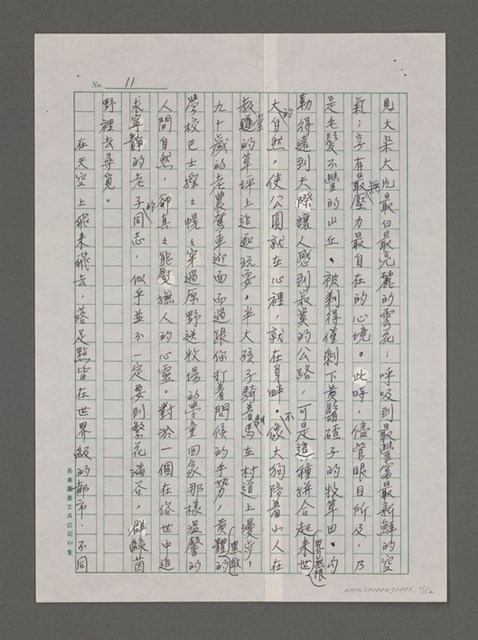 No. 11
見大朵大片最白最亮麗的雲花；呼吸到最豐富最新鮮的空
氣；享有最無壓力最自在的心境。此時，儘管眼目所及，乃
是毛髮不豐的山丘。被剃得僅剩下黃鬍碴子的牧草田。內
勒得遠到天際讓人感到寂寞的公路，可是這種拼合起來世界無限
大的自然，使公園就在心裡，就在身畔。像大狗陪着山人在
教堂的草坪上追逐玩耍。半大孩子騎着馬在村道上漫步，
九十歲的老農駕車迎面而過跟你打着問候的手勢，黃體的
學校巴士緩緩慢慢穿過原野送牧場的學童回家那樣溫馨的
人間自然，卻真真能熨撫人的心靈。對於一個在俗世中追
求寧靜的老子的同志，似乎並不一定要到繁花滿谷，群綠茵
野裡去尋覓。
在天空上飛來飛去，落足點皆在世界級的都市，不同